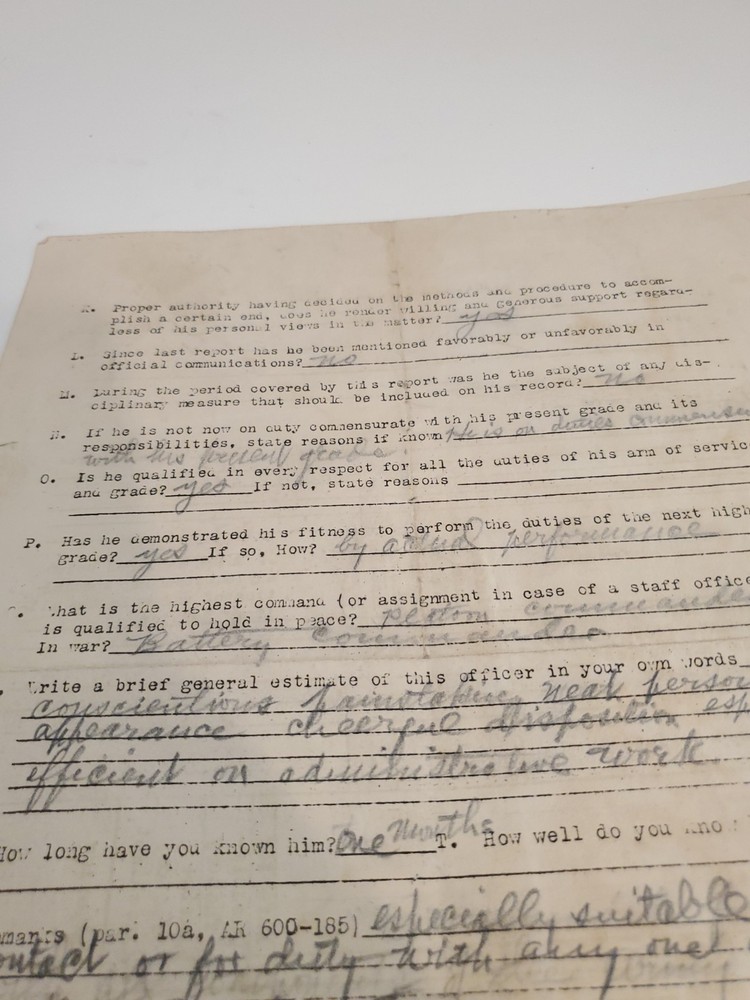 K. Proper authority having decided on the methods and procedure to accom-
plish a certain end, does he render willing and generous support regard-
less of his personal views in the matter? yes
L. Since last report has he been mentioned favorably or unfavorably in
official communications? no
M. During the period covered by this report was he the subject of any dis-
ciplinary measure that should be included on his record? no
N. If he is not now on duty commensurate with his present grade and its
responsibilities, state reasons if known He is on duties commensu
with his present grade.
O. Is he qualified in every respect for all the duties of his arm of servic
and grade? yes If not, state reasons
P. Has he demonstrated his fitness to perform the duties of the next high
grade? yes If so, How? by actual performance
What is the highest command (or assignment in case of a staff office
is qualified to hold in peace? Platoon commander
In war? Battery Commander
Write a brief general estimate of this officer in your own words
conscientious painstaking neat person
appearance cheerful disposition esp
efficient on administrative work.
How long have you known him? One Months T. How well do you kno
marks (par. 10a, AR 600-185) especially suitable
ontact or for duty with any one